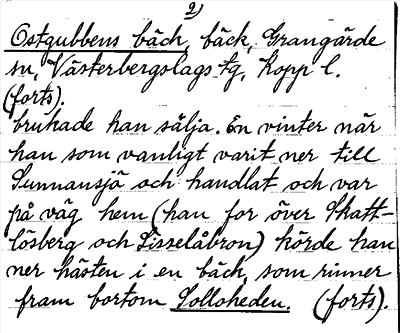 2)
Ostgubbens bäck, bäck, Grangärde
sn, Västerbergslags tg, Kopp l.
(forts).
brukade han sälja. En vinter när
han som vanligt varit ner till
Sunnansjö och handlat och var
på väg hem (han for över Skatt-
lösberg och Lisselåbron) körde han
ner hästen i en bäck, som rinner
fram bortom Solloheden. (forts).